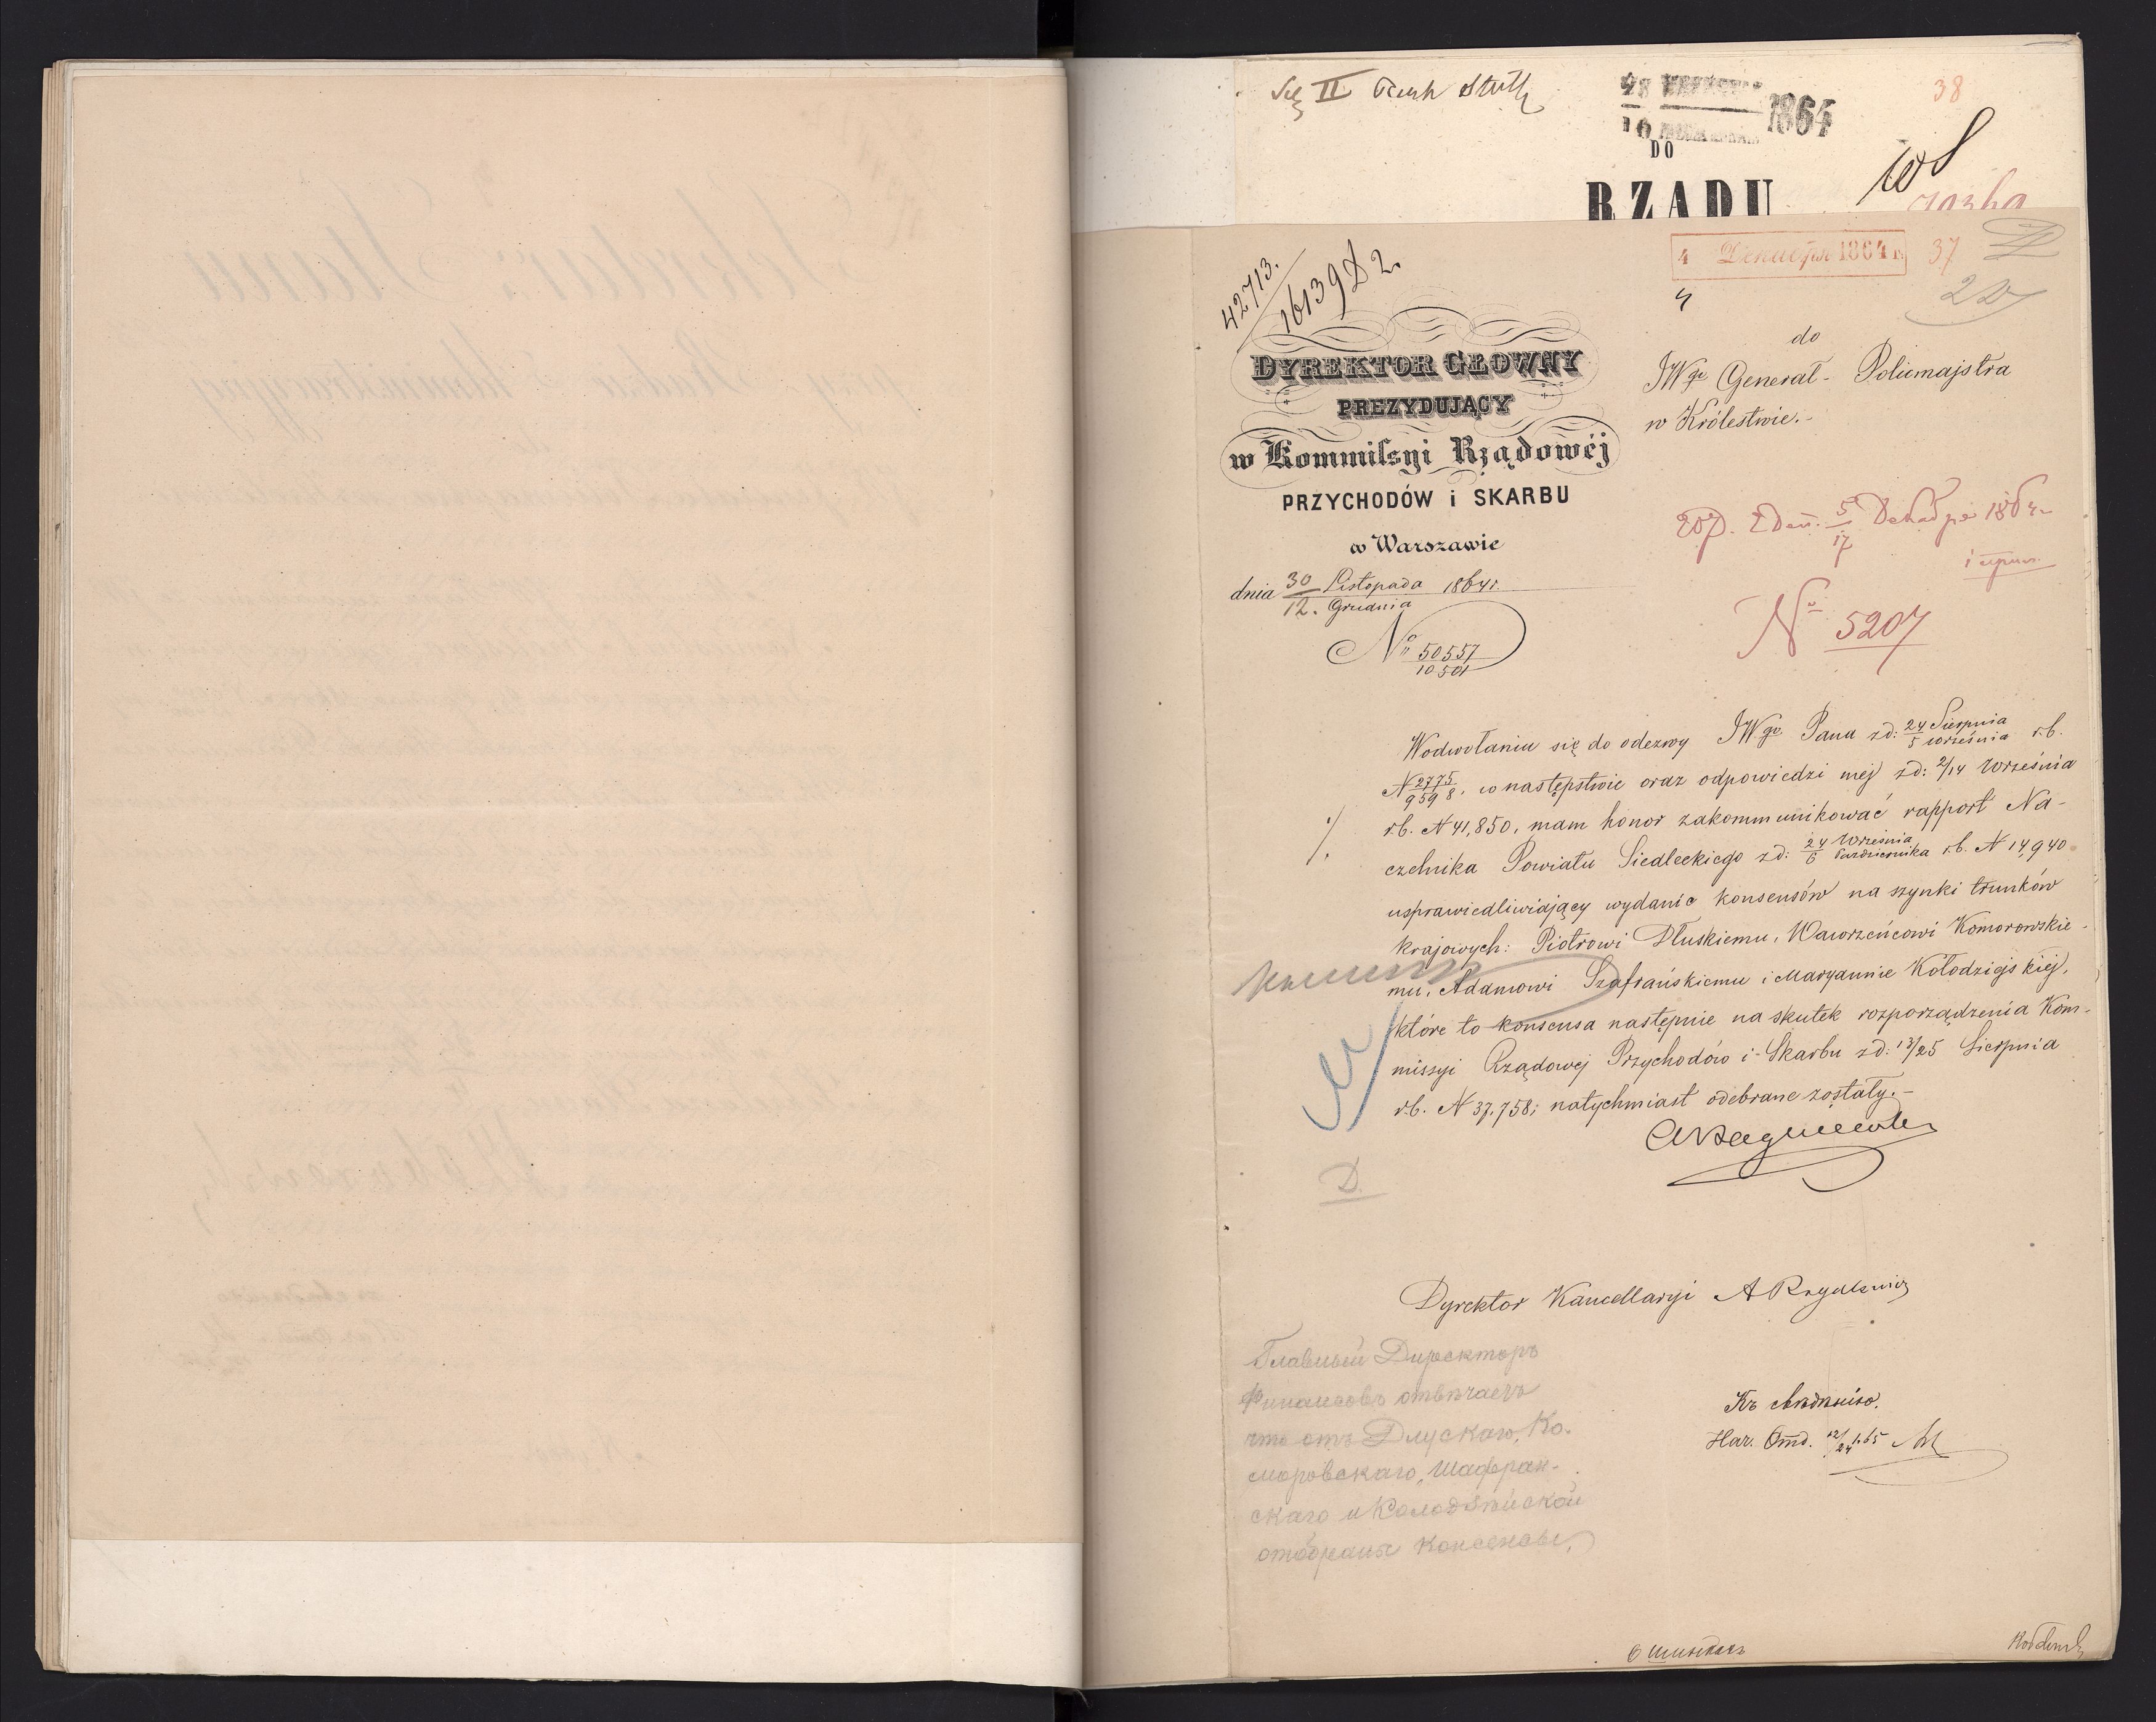 38
1864
DO
RZĄDU
42713.
16139 D 2.
4 1864 г.
37
4
DYREKTOR GŁOWNY
PREZYDUJĄCY
w Kommissyi Rządowéj
PRZYCHODÓW i SKARBU
w Warszawie
dnia 30 Listopada / 12. Grudnia 1864 r.
No 50557 / 10501
do
JWgo Generał-Policmajstra
w Królestwie.-
5/17 Декабря 1864
No 5207
Wodwołaniu się do odezwy JWgo Pana zd: 24 Sierpnia / 5 września r.b.
N 2775 / 9598. w następstwie oraz odpowiedzi mej zd: 2/14 Września
r.b. N 41,850, mam honor zakommunikować rapport Na-
czelnika Powiatu Siedleckiego zd: 24 Września / 6 Października r.b. N 14,940
usprawiedliwiający wydanie konsensów na szynki trunków
krajowych: Piotrowi Dłuskiemu, Wawrzeńcowi Komorowskie-
mu, Adamowi Szafrańskiemu i Maryannie Kołodziejskiej,
które to konsensa następnie na skutek rozporządzenia Kom-
missyi Rządowej Przychodów i Skarbu zd: 13/25 Sierpnia
r.b. N 37,758, natychmiast odebrane zostały.-
D.
Dyrektor Kancellaryi A
Главный Директоръ
Финансовъ отвѣчаетъ
что отъ Длускаго, Ко-
моровскаго, Шафран-
скаго и Колодзѣйской
отобраны консенсы.
Къ свѣдѣнію.
Нач. Отд. 12/24 1.65